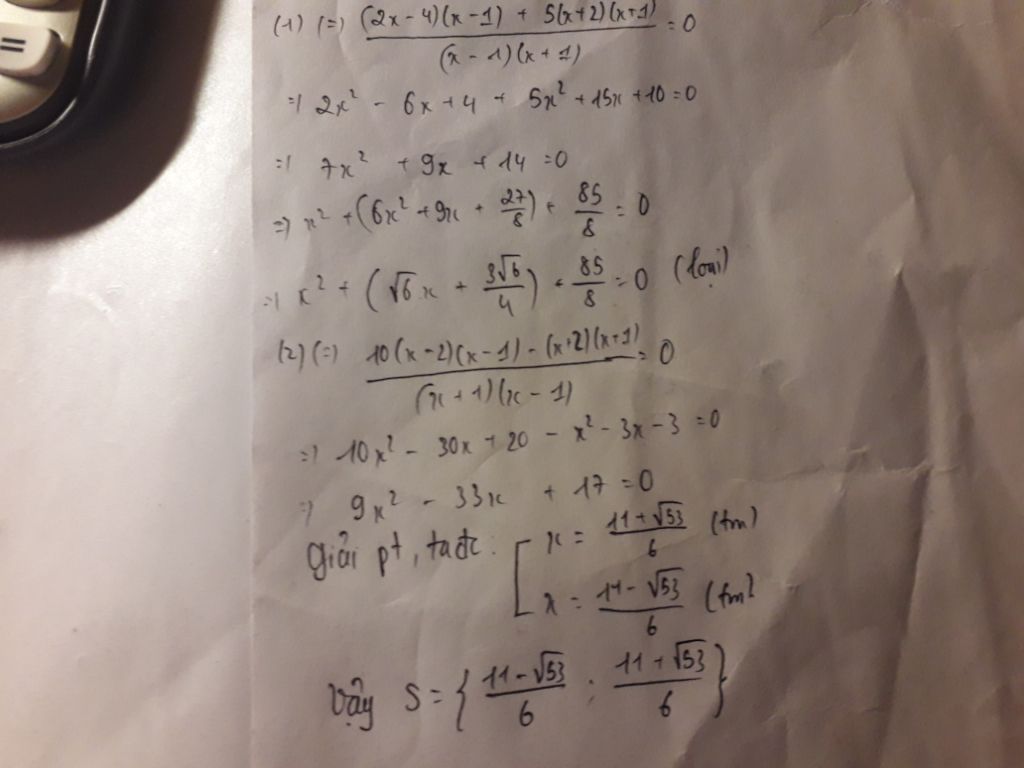 (1) (=) ((2x-4)(x-1) + 5(x+2)(x+1))/((x-1)(x+1)) = 0
=) 2x² - 6x + 4 + 5x² + 15x + 10 = 0
=) 7x² + 9x + 14 = 0
=) x² + (6x² + 9x + 27/8) + 85/8 = 0
=) x² + (√6x + 3√6/4) + 85/8 = 0 (loại)
(2) (=) (10(x-2)(x-1) - (x+2)(x+1))/((x+1)(x-1)) = 0
=) 10x² - 30x + 20 - x² - 3x - 3 = 0
=) 9x² - 33x + 17 = 0
Giải pt, ta đc: [ x = (11+√53)/6 (tm)
x = (11-√53)/6 (tm)
Vậy S = { (11-√53)/6 ; (11+√53)/6 }